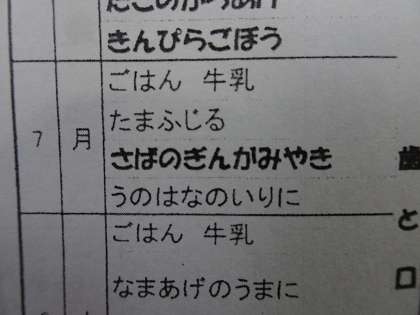 たこのからあげ
きんぴらごぼう
7 月
ごはん 牛乳
たまふじる
さばのぎんがみやき
うのはなのいりに
ごはん 牛乳
なまあげのうまに
歯
と
口